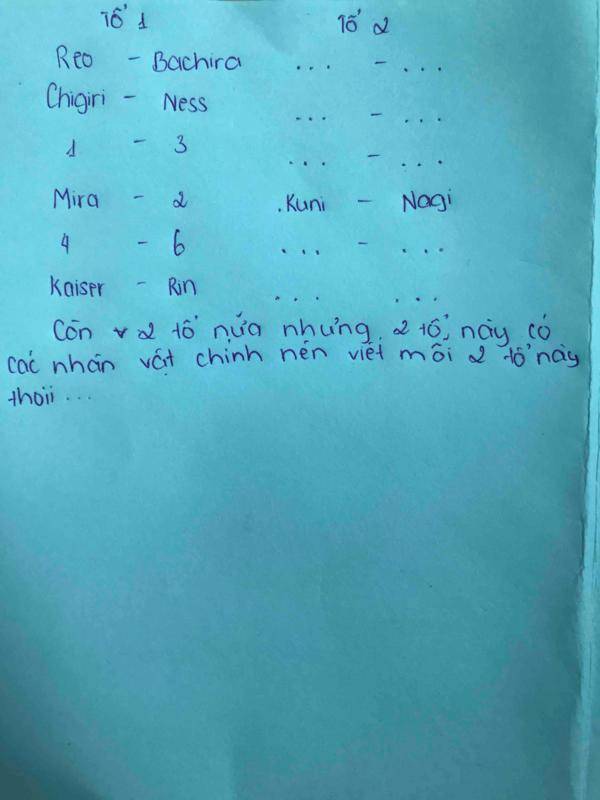 Tổ 1 Tổ 2
Reo - Bachira ... - ...
Chigiri - Ness ... - ...
1 - 3 ... - ...
Mira - 2 .Kuni - Nagi
4 - 6 ... - ...
Kaiser - Rin ... ...
Còn v 2 tổ nữa nhưng 2 tổ này có
các nhân vật chính nên viết mỗi 2 tổ này
thoii ...